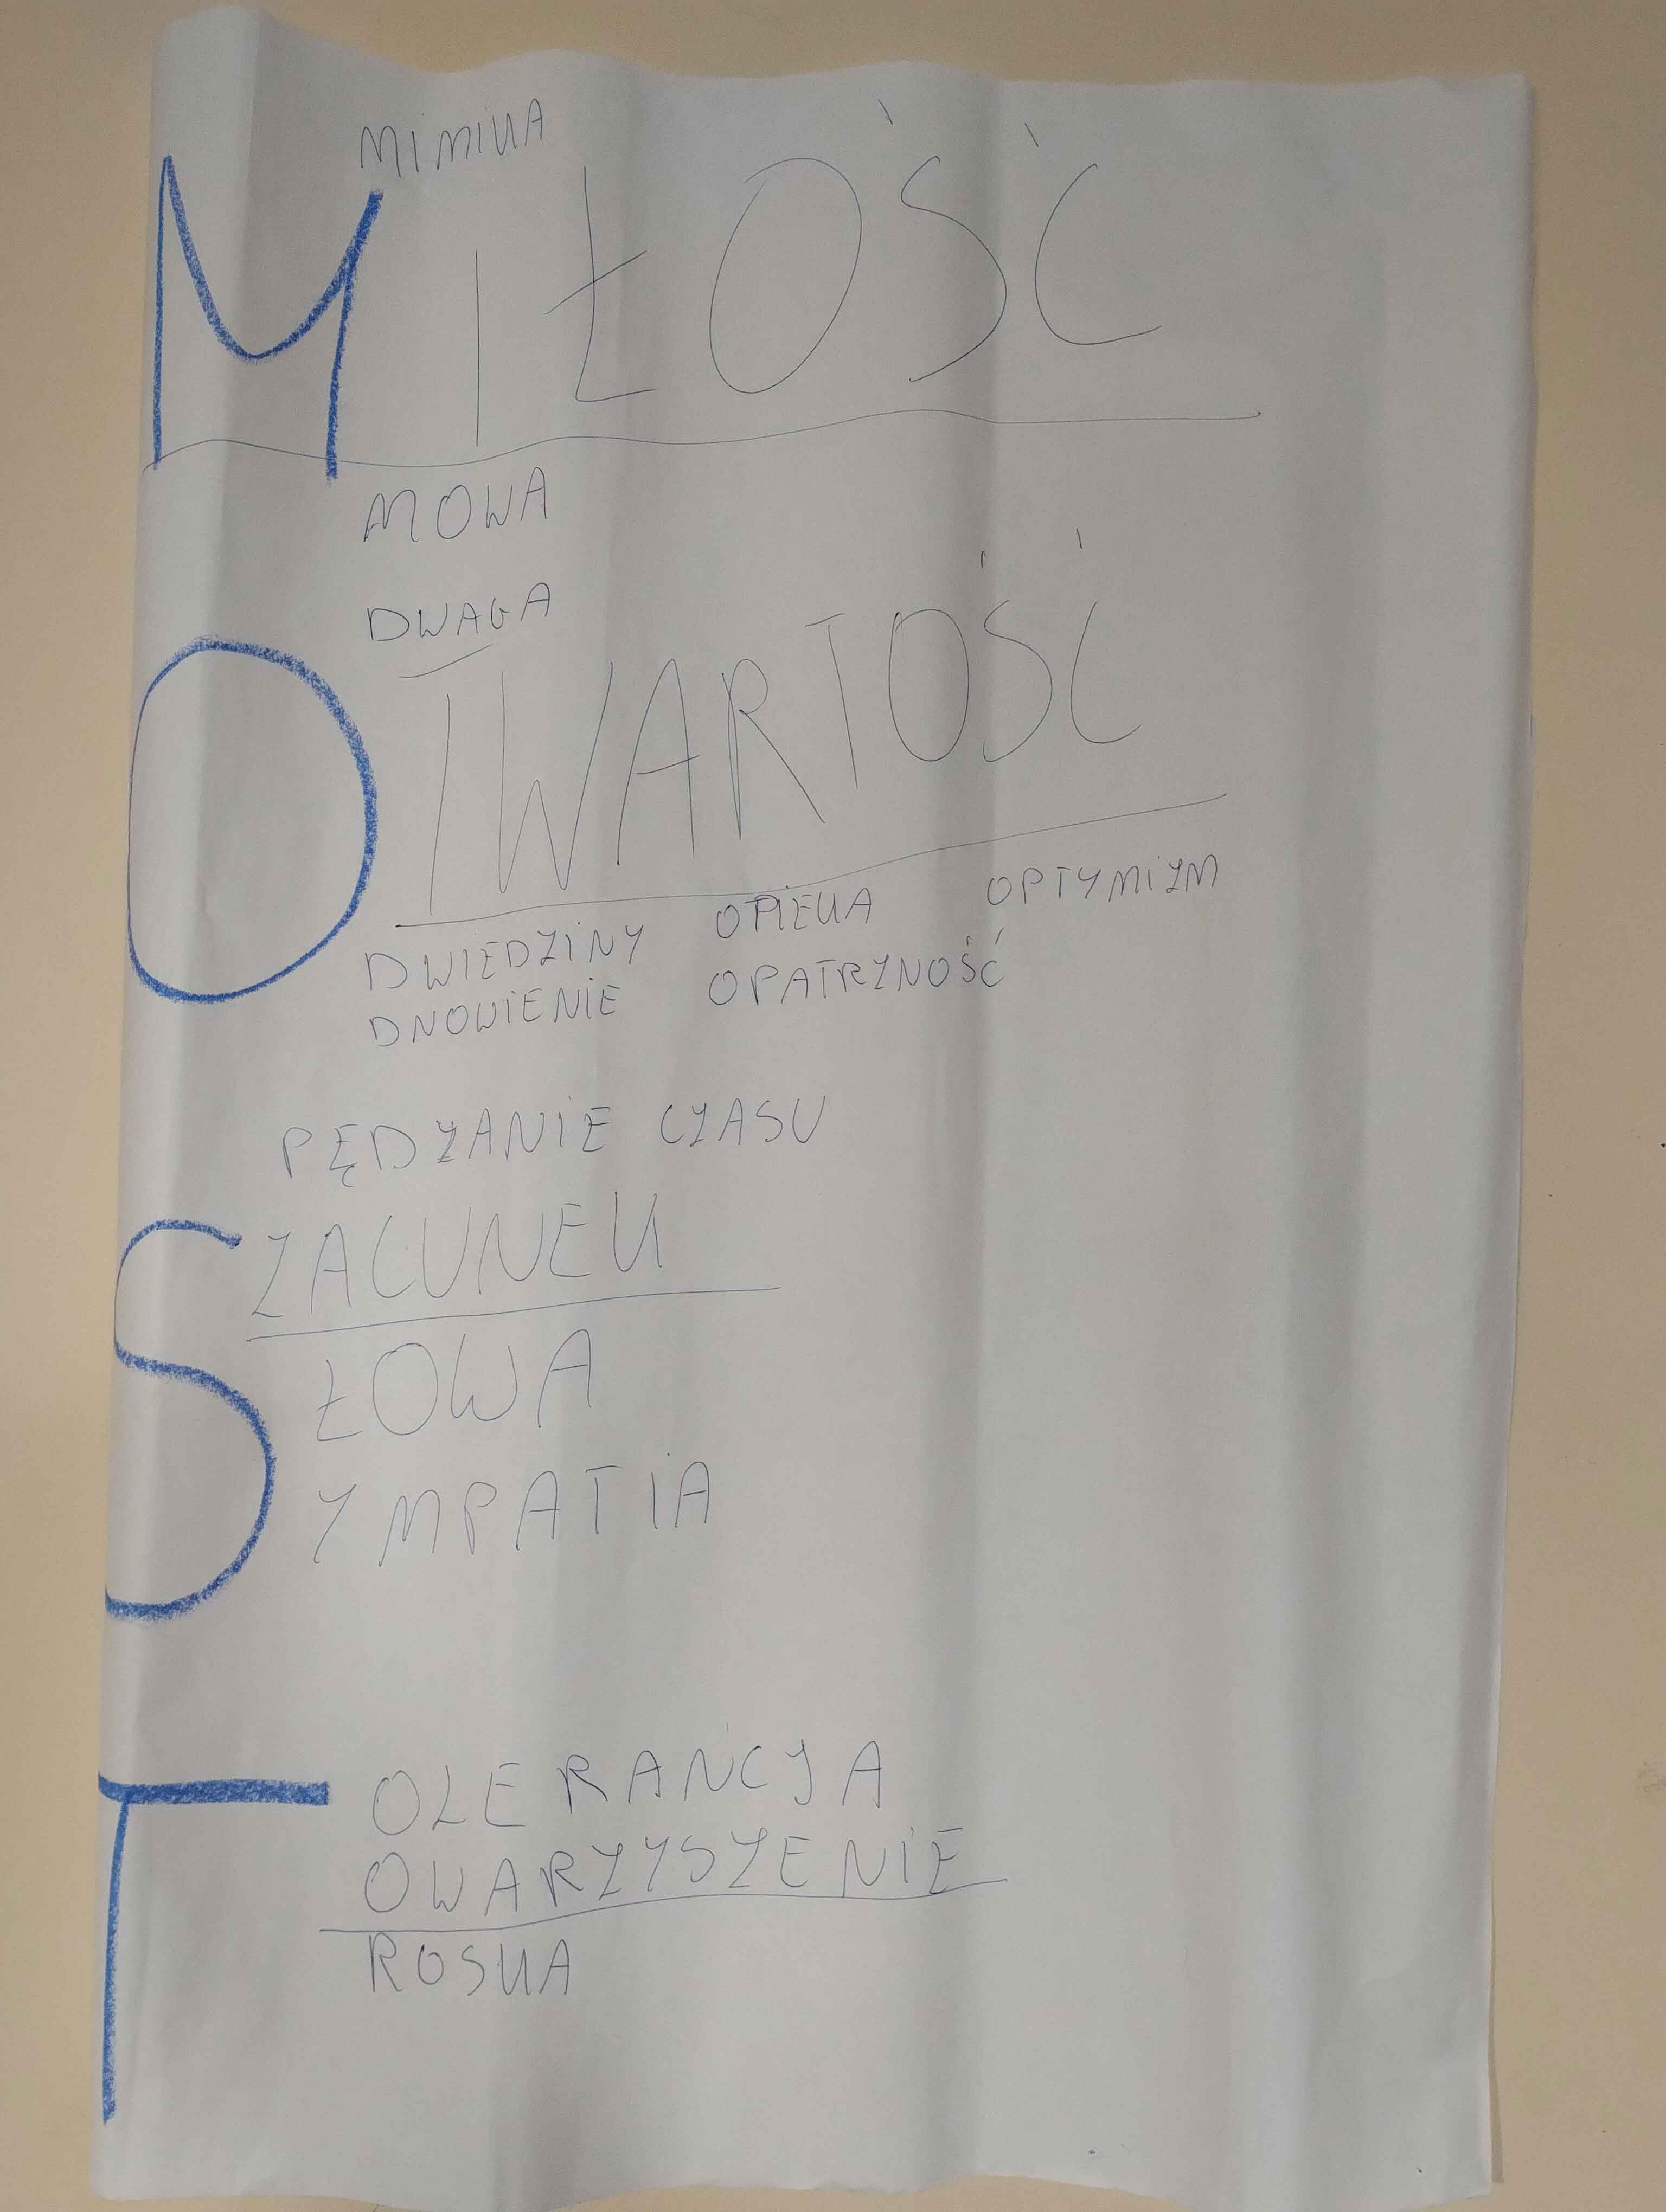 MIMIKA
MIŁOŚĆ
MOWA
DWAGA
OTWARTOŚĆ
DWIEDZINY OPIEKA OPTYMIZM
DNOWIENIE OPATRZNOŚĆ
PĘDZANIE CZASU
SZACUNEK
ŁOWA
YMPATIA
TOLERANCJA
OWARZYSZENIE
ROSKA